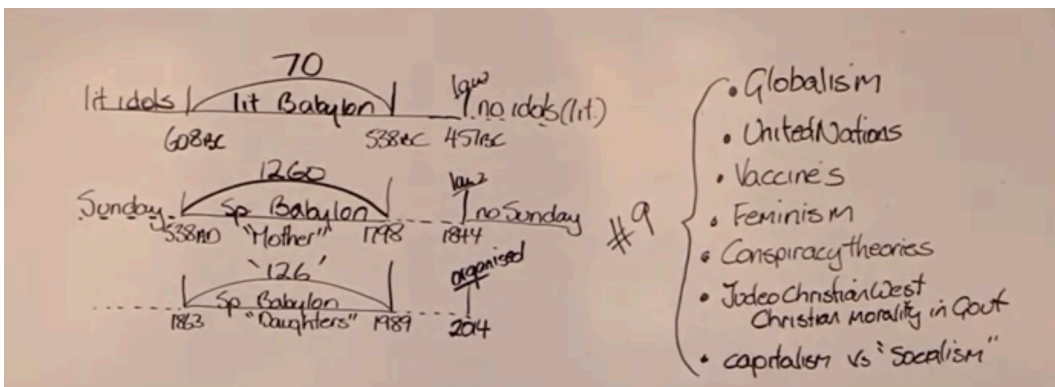 70
lit idols lit Babylon law no idols (lit.)
608BC 538BC 457BC
1260
Sunday Sp Babylon law no Sunday
538AD "Mother" 1798 1844
'126' organised
Sp Babylon
1863 "Daughters" 1989 2014
#9
• Globalism
• United Nations
• Vaccines
• Feminism
• Conspiracy theories
• Judeo Christian West
Christian Morality in Govt
• capitalism vs "Socialism"